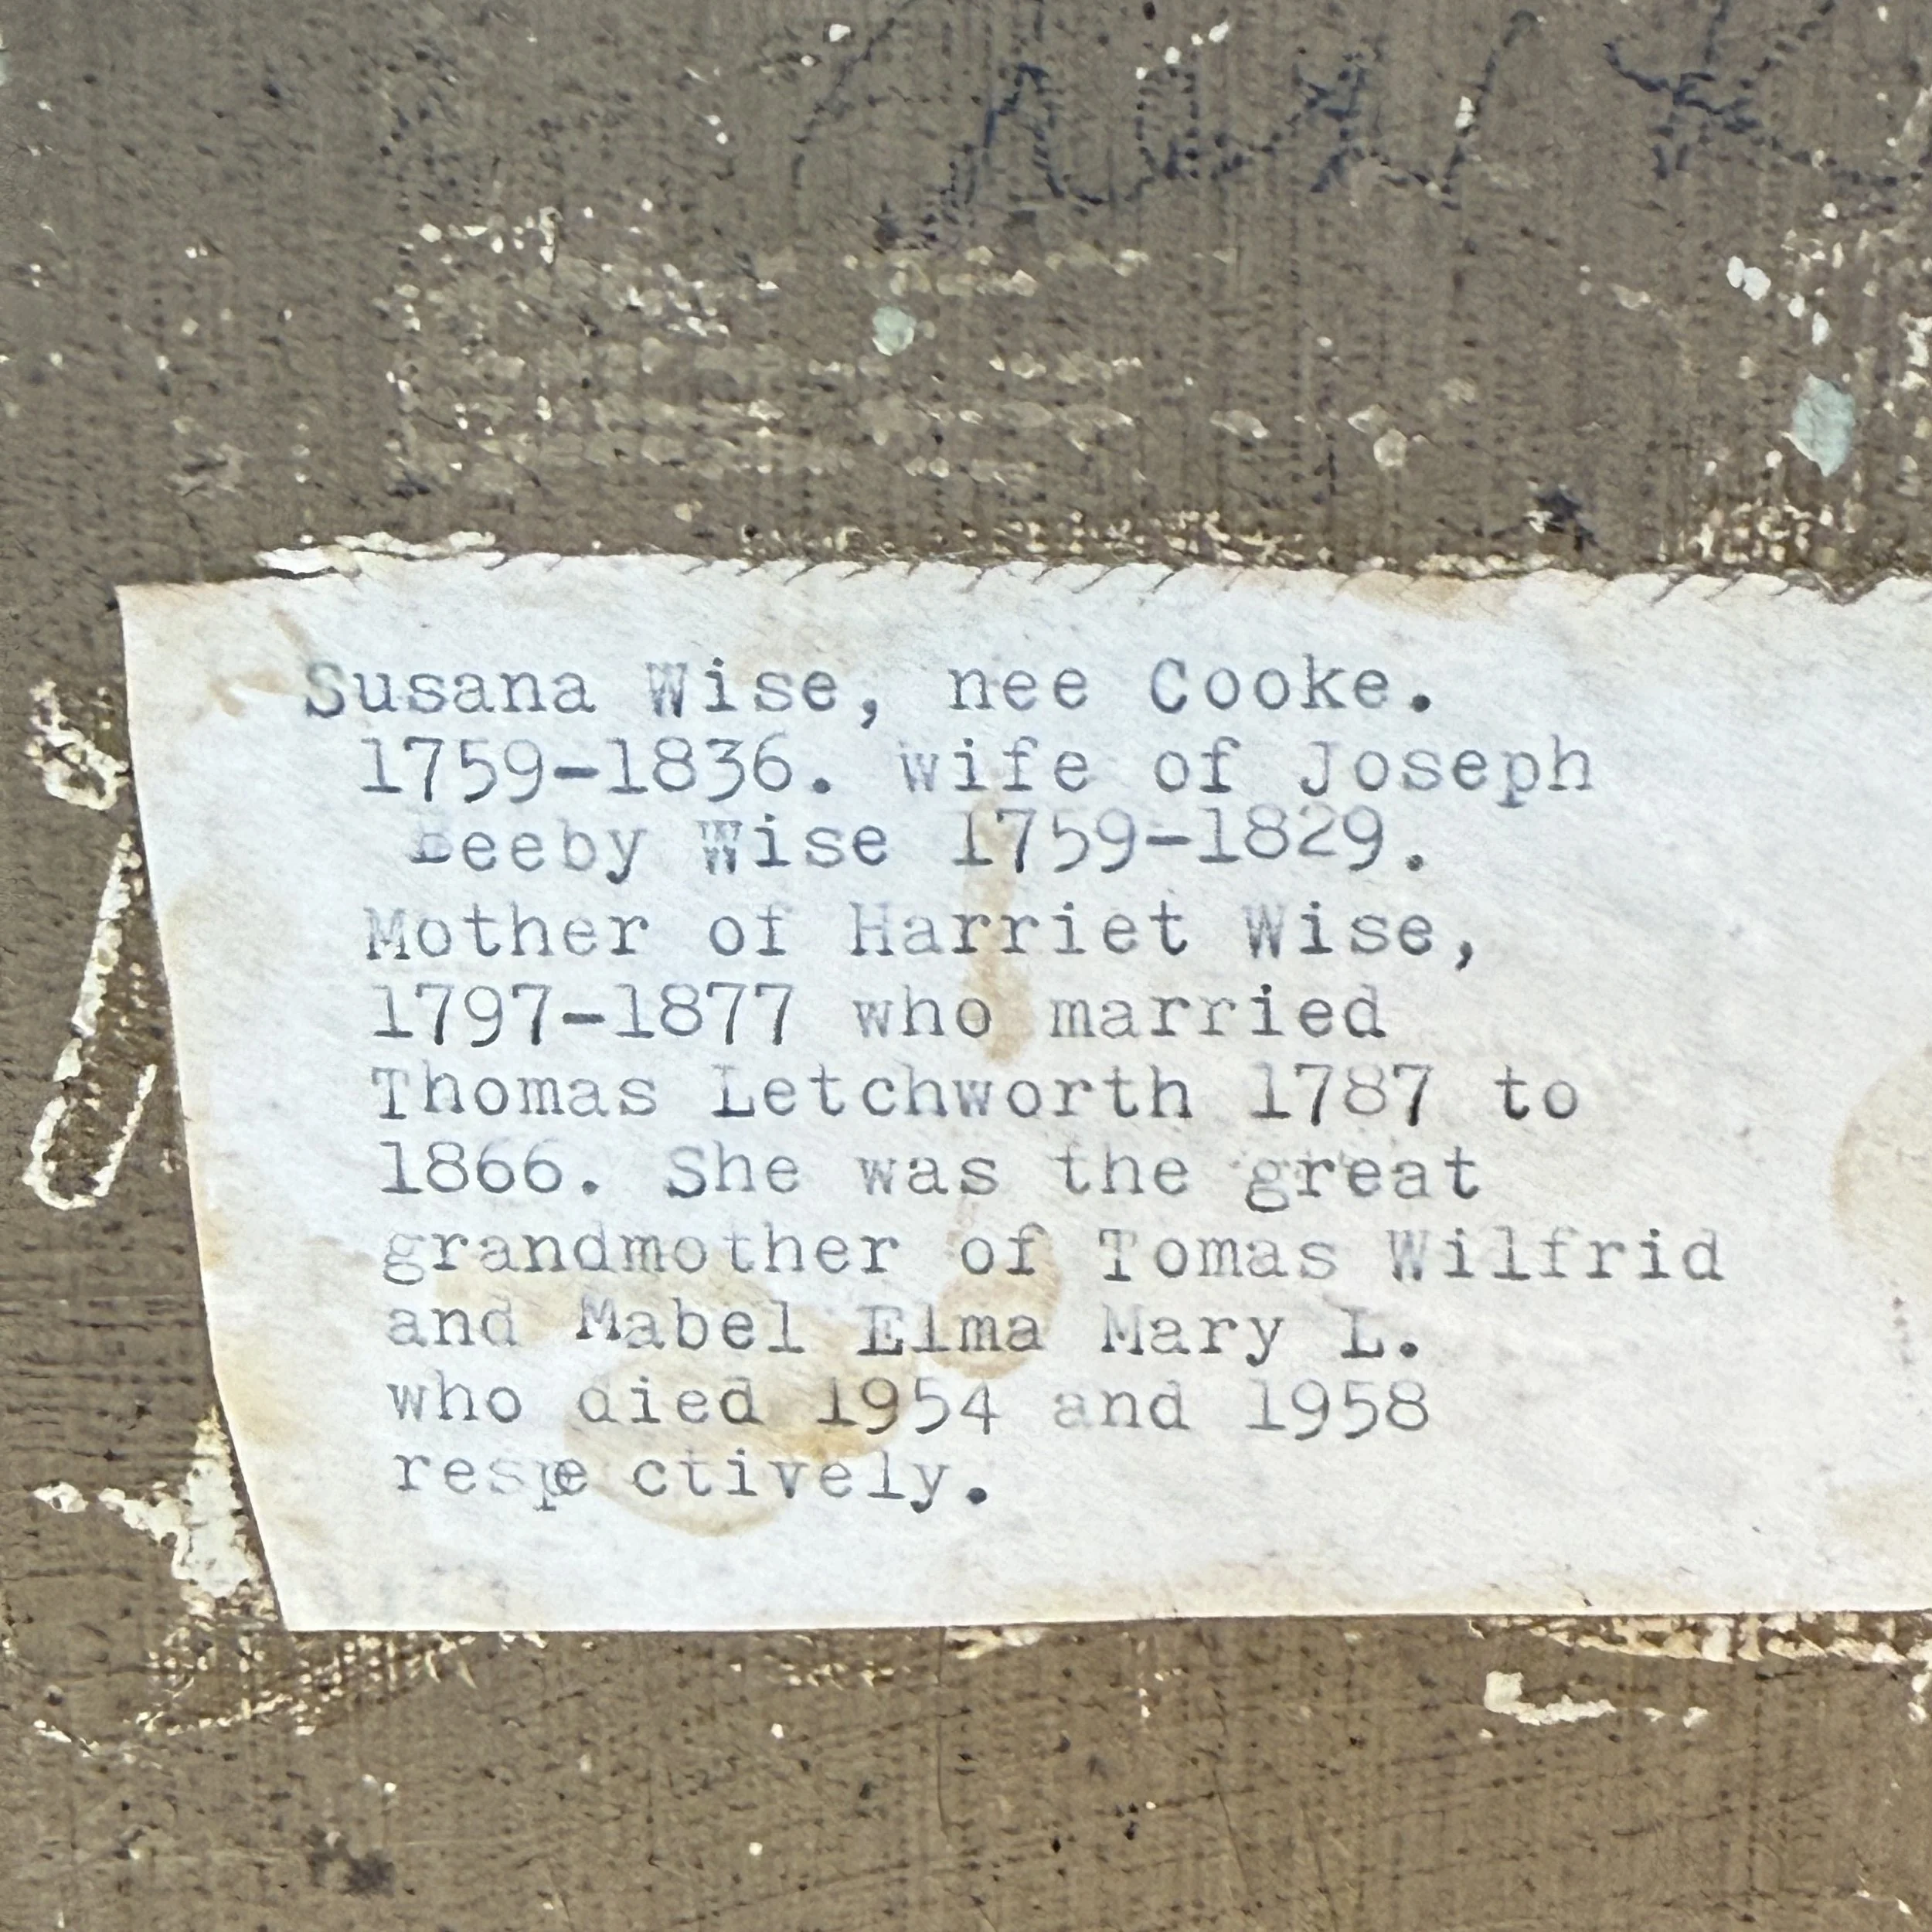 Susana Wise, nee Cooke.
1759-1836. wife of Joseph
Beeby Wise 1759-1829.
Mother of Harriet Wise,
1797-1877 who married
Thomas Letchworth 1787 to
1866. She was the great
grandmother of Tomas Wilfrid
and Mabel Elma Mary L.
who died 1954 and 1958
respe ctively.